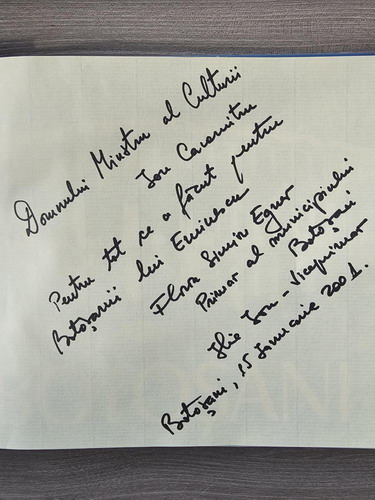 Domnului Ministru al Culturii
Ion Caramitru
Pentru tot ce a făcut pentru
Botoșanii lui Eminescu
Florin Simion Egner
Primar al municipiului
Botoșani
Ilie Ion - Viceprimar
Botoșani, 15 Ianuarie 2001.